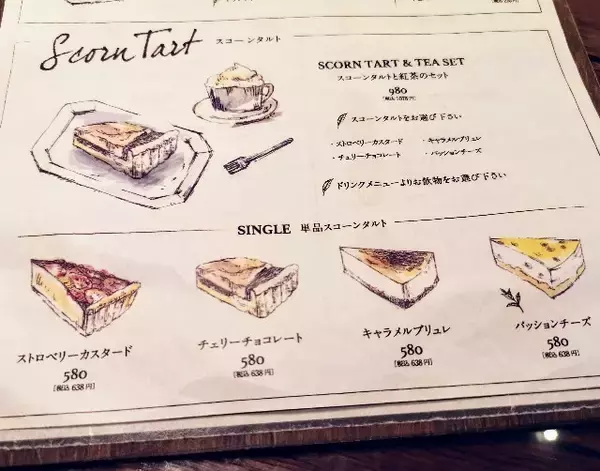 Scorn Tart スコーンタルト
SCORN TART & TEA SET
スコーンタルトと紅茶のセット
980
[税込 1078 円]
スコーンタルトをお選び下さい
・ストロベリーカスタード ・キャラメルブリュレ
・チェリーチョコレート ・パッションチーズ
ドリンクメニューよりお飲物をお選び下さい
SINGLE 単品スコーンタルト
ストロベリーカスタード
580
[税込 638 円]
チェリーチョコレート
580
[税込 638 円]
キャラメルブリュレ
580
[税込 638 円]
パッションチーズ
580
[税込 638 円]